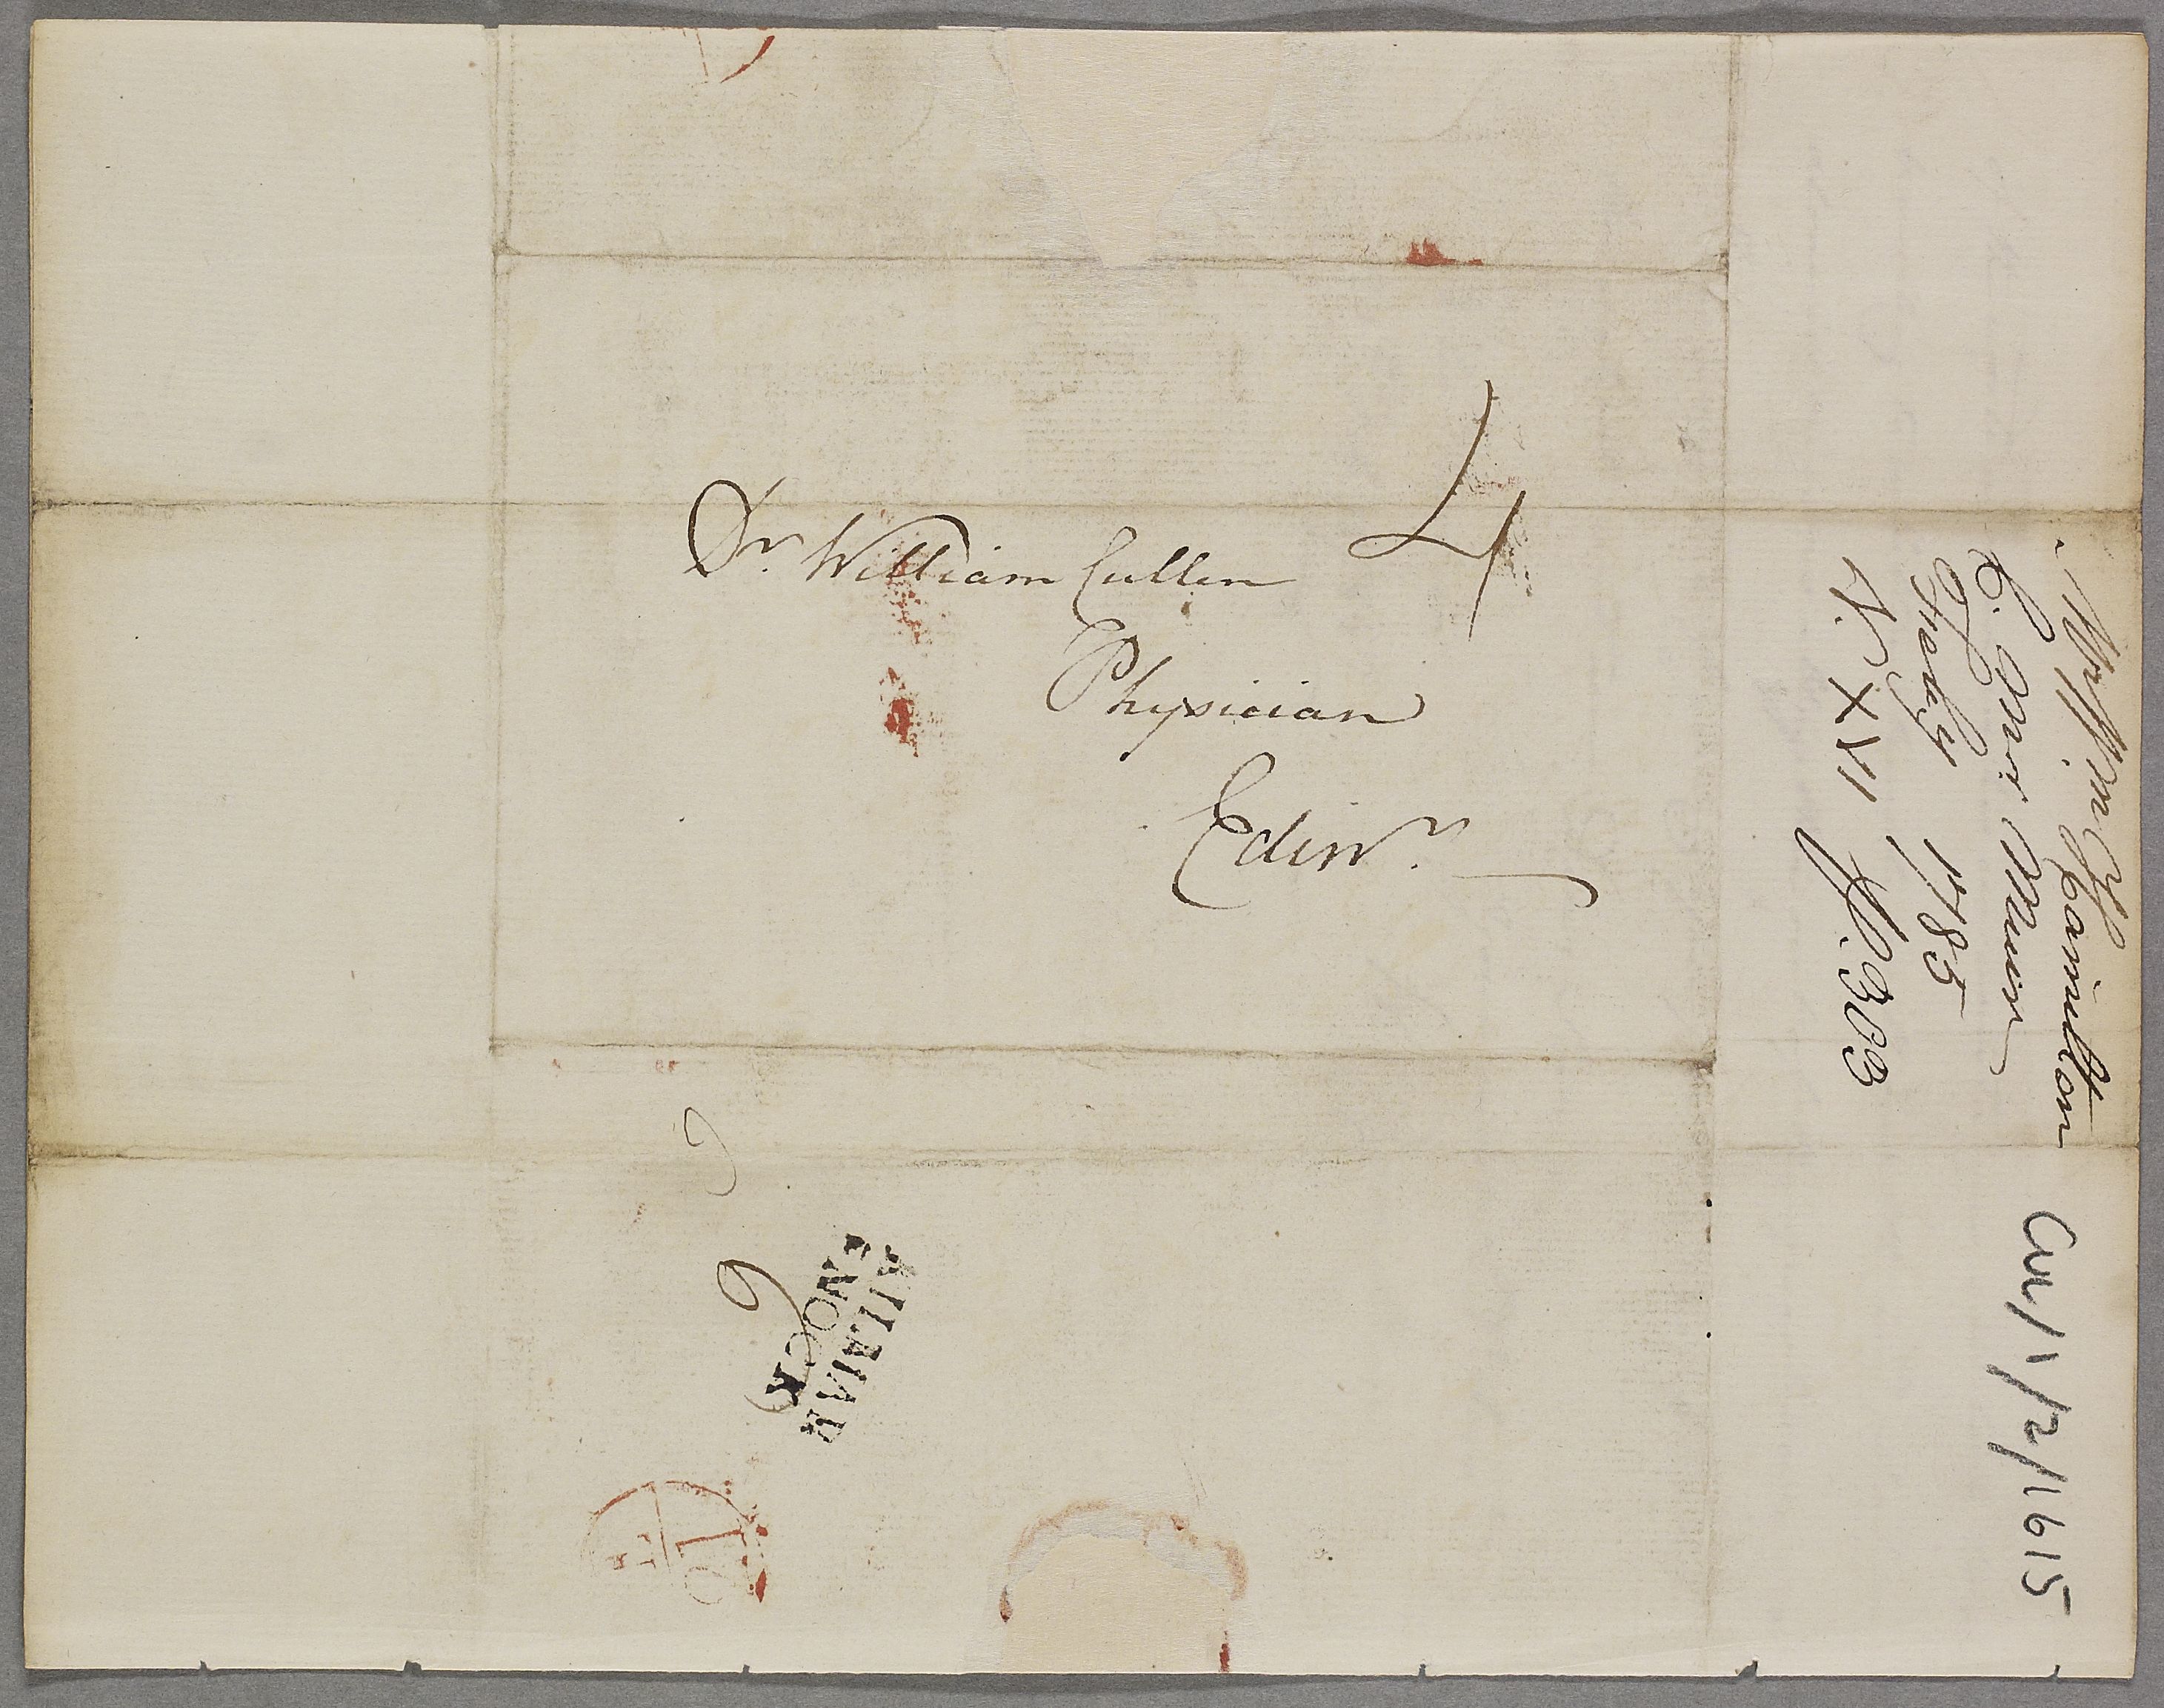 Dr. William Cullen 4
Physician
Edinr.
Mr Wm Hamilton
C. Mrs Muir
July 1785
V. XVI P. 303
CUL/1/2/1615
6
KILMAR
NOCK